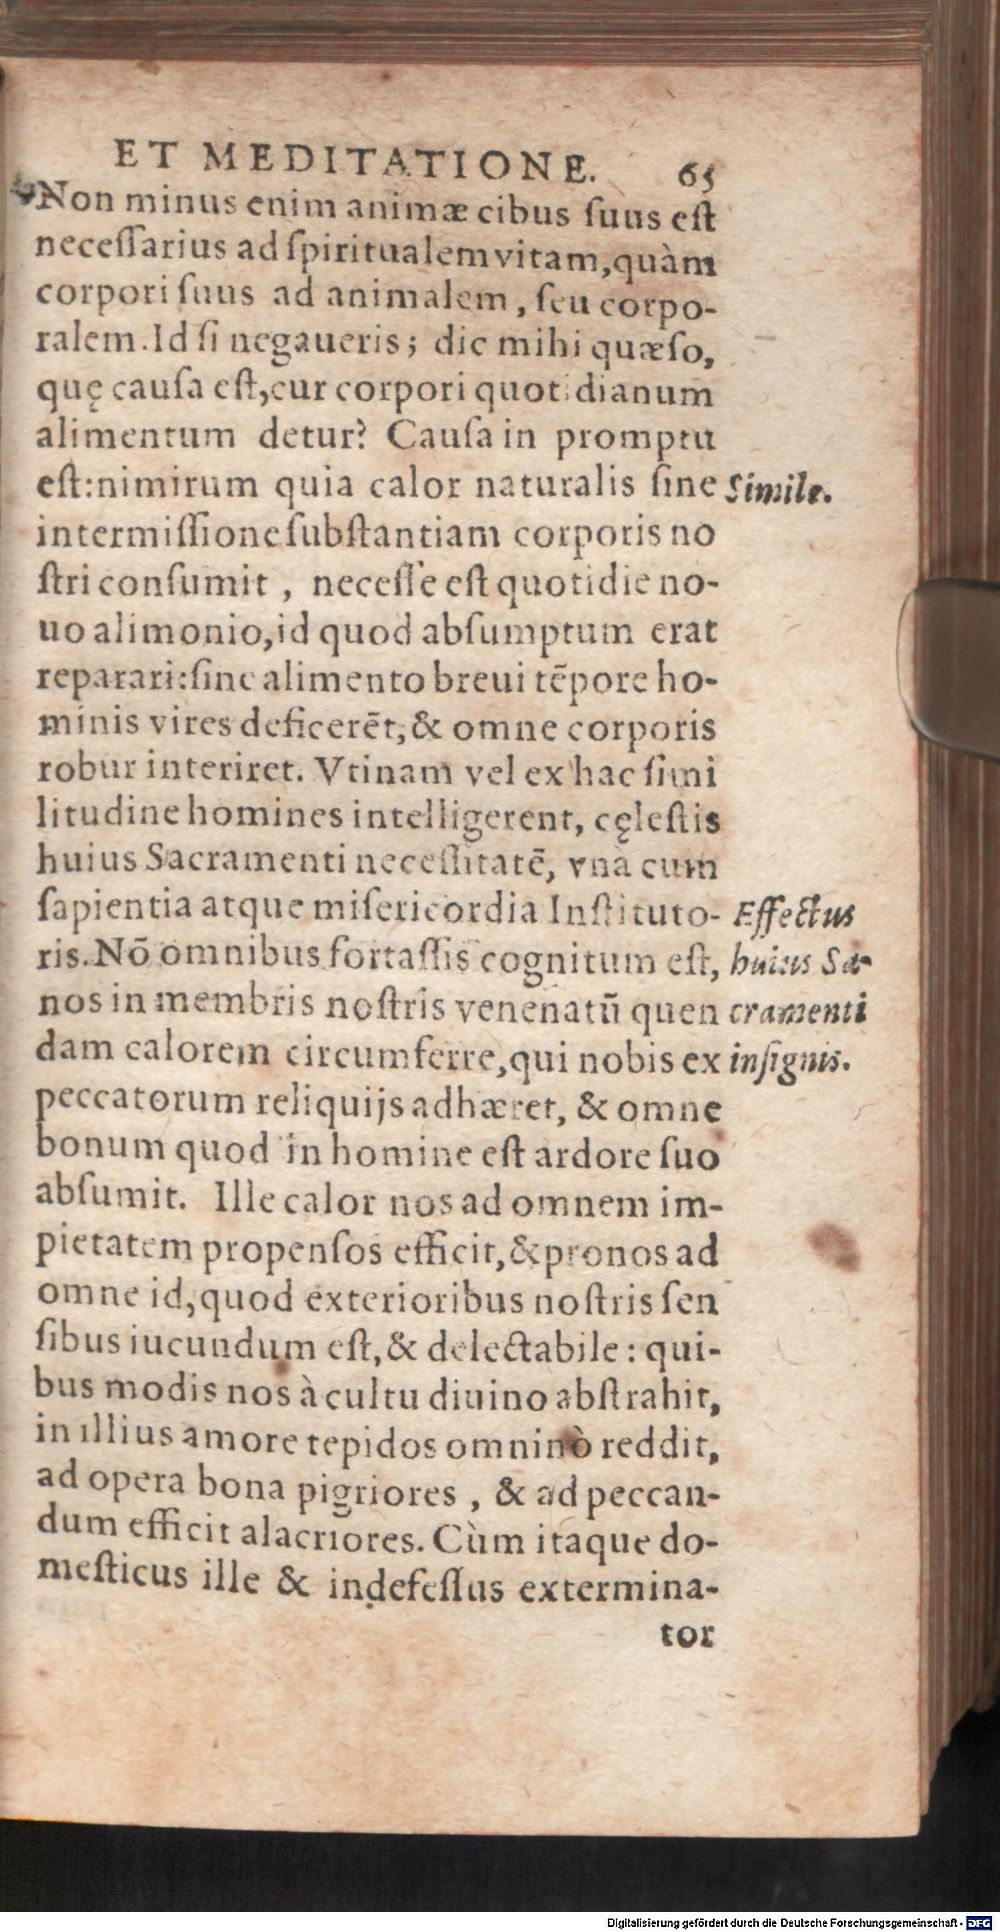 ET MEDITATIONE. 65
Non minus enim animæ cibus ſuus eſt
neceſſarius ad ſpiritualem vitam, quàm
corpori ſuus ad animalem, ſeu corpo-
ralem. Id ſi negaueris; dic mihi quæſo,
quę cauſa eſt, cur corpori quotidianum
alimentum detur? Cauſa in promptu
eſt: nimirum quia calor naturalis ſine
Simile.
intermiſſione ſubſtantiam corporis no
ſtri conſumit, neceſſe eſt quotidie no-
uo alimonio, id quod abſumptum erat
reparari: ſine alimento breui tēpore ho-
minis vires deficerēt, & omne corporis
robur interiret. Vtinam vel ex hac ſimi
litudine homines intelligerent, cęleſtis
huius Sacramenti neceſſitatē, vnà cum
ſapientia atque miſericordia Inſtituto-
ris. Nō omnibus fortaſſis cognitum eſt,
nos in membris noſtris venenatū quen
dam calorem circumferre, qui nobis ex
Effectus
huius Sa-
cramenti
inſignis.
peccatorum reliquijs adhæret, & omne
bonum quod in homine eſt ardore ſuo
abſumit. Ille calor nos ad omnem im-
pietatem propenſos efficit, & pronos ad
omne id, quod exterioribus noſtris ſen
ſibus iucundum eſt, & delectabile: qui-
bus modis nos à cultu diuino abſtrahit,
in illius amore tepidos omninò reddit,
ad opera bona pigriores, & ad peccan-
dum efficit alacriores. Cùm itaque do-
meſticus ille & indefeſſus extermina-
tor
Digitalisierung gefördert durch die Deutsche Forschungsgemeinschaft - DFG